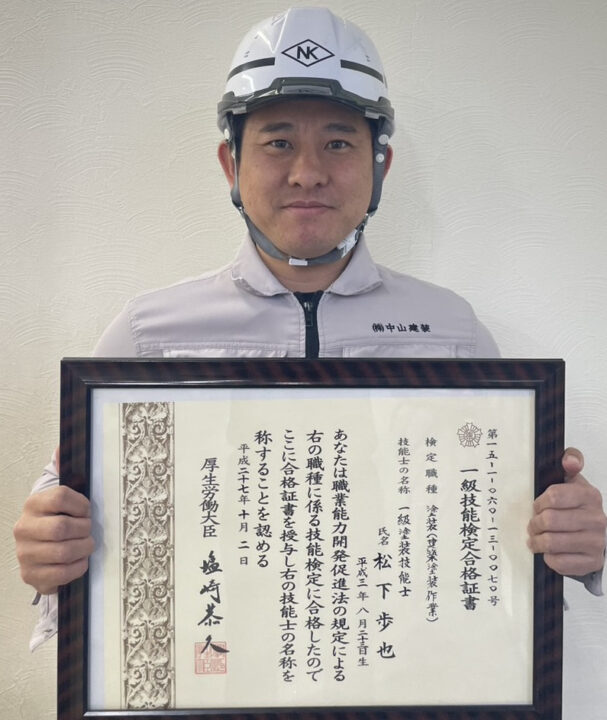 NK
㈲中山建装
第一五-一-〇六〇-一三-〇〇七〇号
一級技能検定合格証書
検定職種 塗装(建築塗装作業)
技能士の名称 一級塗装技能士
氏名 松下歩也
平成三年八月二十三日生
あなたは職業能力開発促進法の規定による
右の職種に係る技能検定に合格したので
ここに合格証書を授与し右の技能士の名称を
称することを認める
平成二十七年十月二日
厚生労働大臣 塩崎恭久